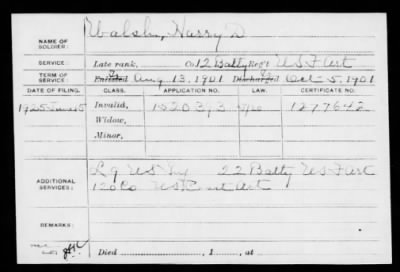 NAME OF SOLDIER: Walsh, Harry D
SERVICE: Late rank, Co. 12 Batty Reg't US F Art
TERM OF SERVICE: Enlisted Aug 13, 1901 Discharged Oct 5, 1901
DATE OF FILING. CLASS. APPLICATION NO. LAW. CERTIFICATE NO.
1925 June 5 Invalid, 1520393 1277642
Widow,
Minor,
ADDITIONAL SERVICES: US 22 Batty US F Art
120 Co US Coast Art
REMARKS:
Died , 1 , at